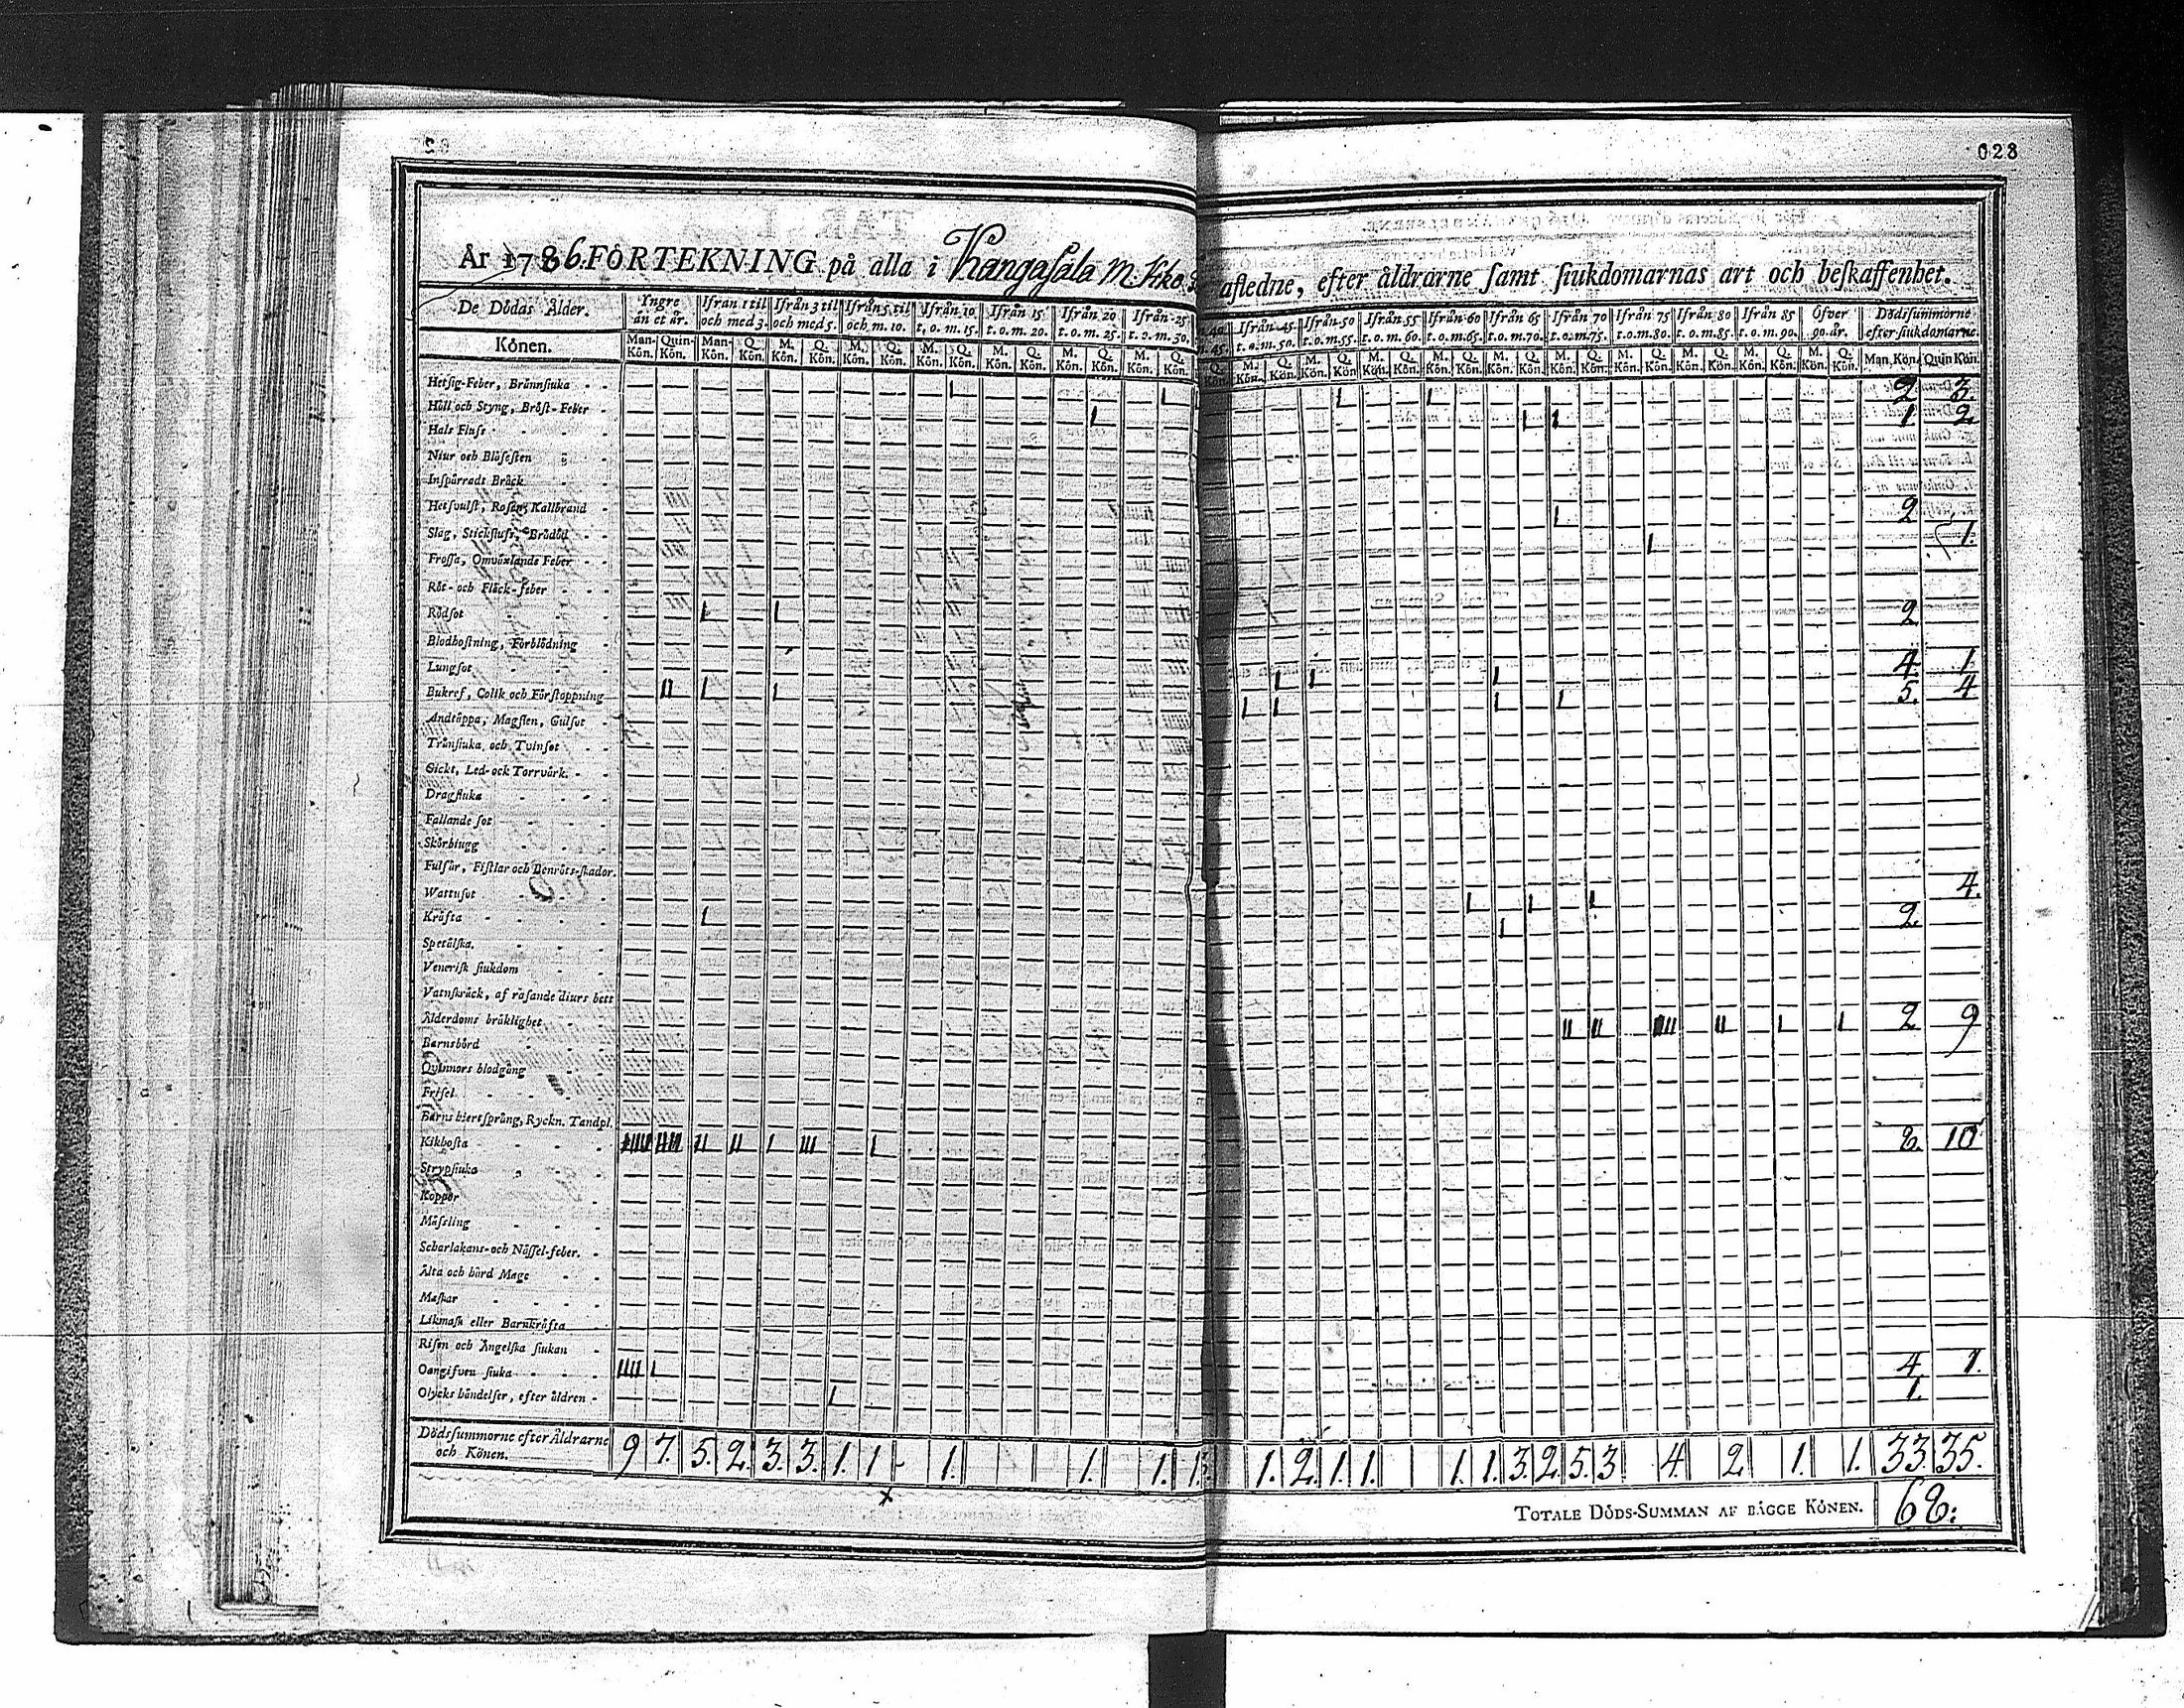 023
År 1786. FÖRTEKNING på alla i Kangasala M. afledne, efter åldrarne samt siukdomarnas art och beskaffenhet.
De Dödas Ålder. Yngre än et år. Ifrån 1 til och med 3. Ifrån 3 til och med 5. Ifrån 5 til och m. 10. Ifrån 10 t. o. m. 15. Ifrån 15 t. o. m. 20. Ifrån 20 t. o. m. 25. Ifrån 25 t. o. m. 30. 40 45. Ifrån 45 t. o. m. 50. Ifrån 50 t. o. m. 55. Ifrån 55 t. o. m. 60. Ifrån 60 t. o. m. 65. Ifrån 65 t. o. m. 70. Ifrån 70 t. o. m. 75. Ifrån 75 t. o. m. 80. Ifrån 80 t. o. m. 85. Ifrån 85 t. o. m. 90. Öfver 90. år. Dödssummorne efter siukdomarne.
Könen. Man-Kön. Quin-Kön. Man-Kön. Q. Kön. M. Kön. Q. Kön. M. Kön. Q. Kön. M. Kön. Q. Kön. M. Kön. Q. Kön. M. Kön. Q. Kön. M. Kön. Q. Kön. Q. Kön. M. Kön. Q. Kön. M. Kön. Q. Kön. M. Kön. Q. Kön. M. Kön. Q. Kön. M. Kön. Q. Kön. M. Kön. Q. Kön. M. Kön. Q. Kön. M. Kön. Q. Kön. M. Kön. Q. Kön. M. Kön. Q. Kön. Man. Kön. Quin Kön.
Hetsig-Feber, Brännsiuka 2 3.
Håll och Styng, Bröst-Feber 1. 2
Hals Fluss
Niur och Blåsesten
Inspärradt Bråck
Hetsvulst, Rosen, Kallbrand 2
Slag, Stickfluss, Brådöd 1.
Frossa, Omväxlande Feber
Röt- och Fläck-feber
Rödsot 2
Blodhostning, Förblödning
Lungsot 4. 1.
Bukref, Colik och Förstoppning 5. 4
Andtäppa, Magflen, Gulsot
Trånsiuka, och Tvinsot
Gickt, Led- och Torrvärk.
Dragsiuka
Fallande sot
Skörbiugg
Fulsår, Fistlar och Benröts-skador.
Wattusot 4.
Kräfta 2.
Spetälska.
Venerisk siukdom
Vatnskräck, af rasande diurs bett
Ålderdoms bräklighet 2 9
Barnsbörd
Qvinnors blodgång
Frisel
Barns hiertsprång, Ryckn. Tandpl.
Kikhosta 8. 10
Strypsiuka
Koppor
Mässling
Scharlakans- och Nässel-feber.
Älta och hård Mage
Maskar
Likmask eller Barnkräfta
Risen och Ängelska siukan
Oangifven siuka 4 1.
Olycks händelser, efter åldren 1.
Dödssummorne efter Åldrarne och Könen. 9 7. 5. 2. 3. 3. 1. 1 - 1. 1. 1. 1. 1. 2. 1. 1. 1. 1. 3. 2. 5. 3. 4. 2 1. 1. 33. 35.
TOTALE DÖDS-SUMMAN AF BÄGGE KÖNEN. 68.